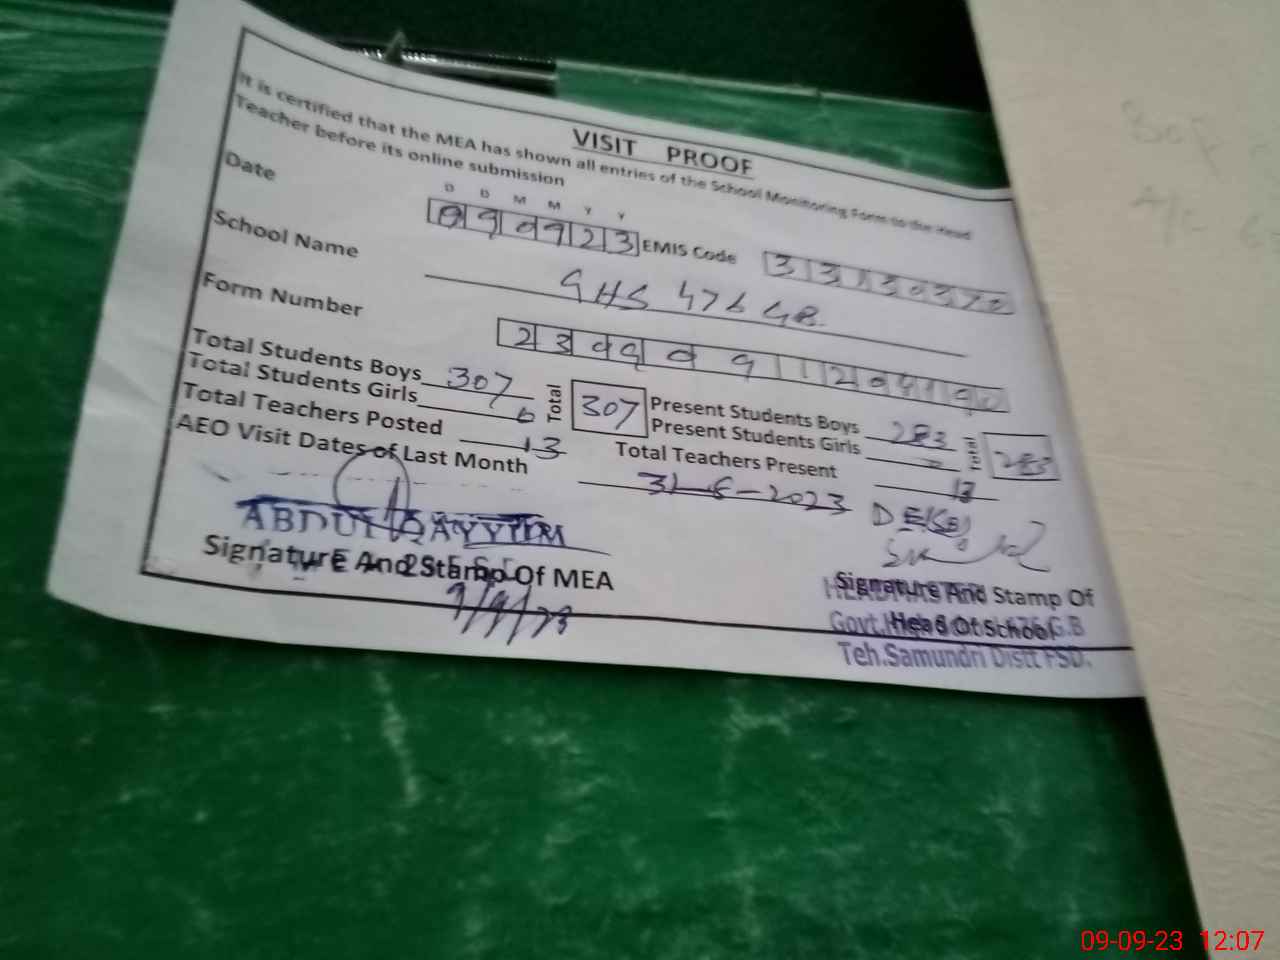 VISIT PROOF
It is certified that the MEA has shown all entries of the School Monitoring Form to the Head
Teacher before its online submission
D D M M Y Y
Date 090923 EMIS Code 33130370
School Name GHS 476 GB
Form Number
Total Students Boys 307 Total 307 Present Students Boys 283 Total 283
Total Students Girls 0 Present Students Girls 0
Total Teachers Posted 13 Total Teachers Present 13
AEO Visit Dates of Last Month 31-8-2023 DE(SE)
ABDUL QAYYUM
Signature And Stamp Of MEA
9/9/23
Signature And Stamp Of
Head Of School
Govt. G.B
Teh.Samundri Distt FSD.
09-09-23 12:07